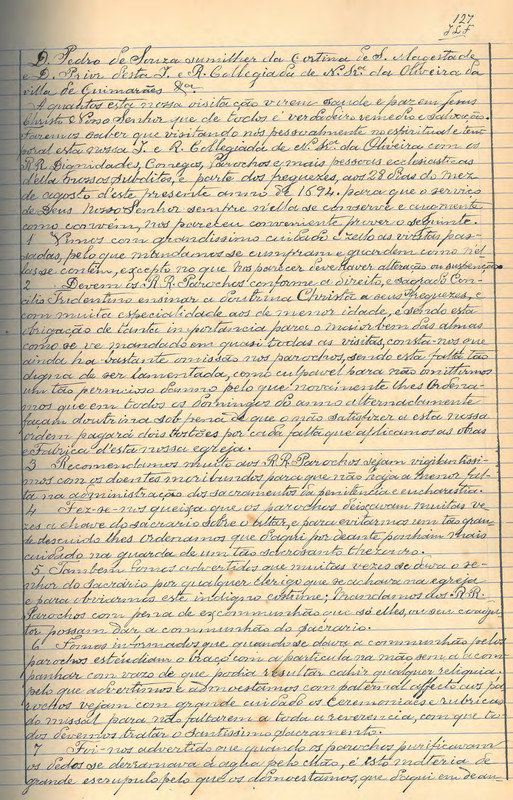 127
J.L.F
D. Pedro de Souza sumilher da Cortina de S. Magestade
e D. Prior desta I. e R. Collegiada de N.ª Srª da Oliveira da
villa de Guimarães &ª
A quantos esta nossa visitação virem saude e paz em Jesus
Christo Nosso Senhor que de todos é verdadeiro remedio e salvação.
Fazemos saber que visitando nós pessoalmente no espiritual e tem
poral esta nossa I. e R. Collegiada de N. Srª da Oliveira com os
RR. Dignidades, Conegos, Parochos e mais pessoas ecclesiasticas
d'ella nossos subditos, e parte dos freguezes, aos 28 dias do mez
de agosto d'este presente anno de 1694. para que o serviço
de Deus Nosso Senhor sempre n'ella se conserve e augmente
como convem, nos pareceu conveniente prover o seguinte.
1 Vimos com grandissimo cuidado e zello as visitas pas-
sadas, pelo que mandamos se cumpram e guardem como nel-
las se contém, excepto no que nos parecer deve haver alteração ou suspenção
2 Devem os R.R. Parochos conforme a direito, e sagrado Con-
cilio Tridentino ensinar a doutrina Christã a seus freguezes, e
com muita especialidade aos de menor idade, e sendo esta
obrigação de tanta importancia para o maior bem das almas
como se vê mandado em quasi todas as visitas, consta-nos que
ainda ha bastante omissão nos parochos, sendo esta falta tão
digna de ser lamentada, como culpavel para não omittirmos
um tão pernicioso damno pelo que novamente lhes ordena-
mos que em todos os Domingos do anno alternadamente
façam doutrina sob pena de que o não satisfizer a esta nossa
ordem pagará dois tostões por cada falta que aplicamos as obras
e Fabrica d'esta nossa egreja.
3 Recomendamos muito aos RR. Parochos sejam vigilantissi-
mos com os doentes moribundos para que não haja a menor fal-
ta na administração dos sacramentos da penitencia e eucharistia.
4 Fez-se-nos queixa que os parochos deixavam muitas ve-
zes a chave do sacrario sobre o altar, e para evitarmos um tão gran-
de descuido lhes ordenamos que d'aqui por deante ponham mais
cuidado na guarda de um tão sacrosanto thezouro.
5 Tambem fomos advertidos que muitas vezes se dava o se-
nhor do sacrario por qualquer clerigo que se achava na egreja
e para obviarmos este indigno costume; Mandamos aos R.R.
Parochos com pena de excommunhão que só elles, ou seu coadju-
tor possam dar a communhão do sacrario.
6 Fomos informados que quando se dava a communhão pelos
parochos estendiam o braço com a particula na mão sem a acom
panhar com vazo de que podia resultar cahir qualquer reliquia
pelo que advertimos e admoestamos com paternal affecto aos pa-
rochos vejam com grande cuidado os Ceremoniaes e rubricas
do missal para não faltarem a toda a reverencia, com que to
dos devemos tratar o Santissimo Sacramento.
7 Foi-nos advertido que quando os parochos purificavam
os dedos se derramava a agua pelo chão, e é isto materia de
grande escrupulo pelo que os admoestamos, que d'aqui em dean-